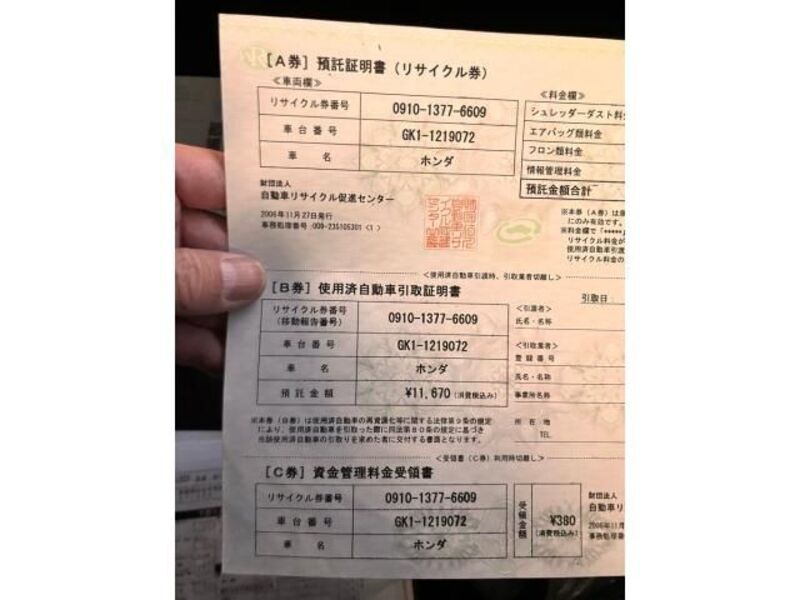 [A券] 預託証明書(リサイクル券)
≪車両欄≫
リサイクル券番号 0910-1377-6609
車台番号 GK1-1219072
車名 ホンダ
≪料金欄≫
シュレッダーダスト料
エアバッグ類料金
フロン類料金
情報管理料金
預託金額合計
財団法人
自動車リサイクル促進センター
2006年11月27日発行
事務処理番号:009-235105301〈1〉
※本券(A券)は
にのみ有効です。
※料金欄で「*****」
リサイクル料金が
使用済自動車引渡
リサイクル料金の
<使用済自動車引渡時、引取業者切離し>
[B券] 使用済自動車引取証明書
リサイクル券番号
(移動報告番号) 0910-1377-6609
車台番号 GK1-1219072
車名 ホンダ
預託金額 ¥11,670 (消費税込み)
引取日:
<引渡者>
氏名・名称
<引取業者>
登録番号
氏名・名称
事業所名称
所在地
TEL
※本券(B券)は使用済自動車の再資源化等に関する法律第9条の規定
により、使用済自動車を引取った際に同法第80条の規定に基づき
当該使用済自動車の引取りを求めた者に交付する書面となります。
<受領書(C券)利用時切離し>
[C券] 資金管理料金受領書
リサイクル券番号 0910-1377-6609
車台番号 GK1-1219072
車名 ホンダ
受領金額 ¥380
(消費税込み)
財団法人
自動車リ
2006年11月
事務処理番